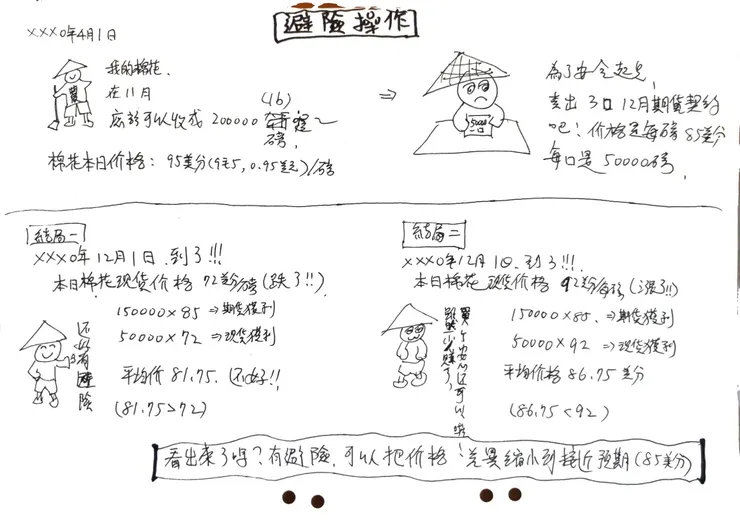 避險操作
XXX0年4月1日
我的棉花、
在11月
底於可以收成 200000
(1b)
磅,
棉花本日价格: 95美分(95, 0.95美元)/磅
⇒
為了安全起見,
賣出 3口 12月期貨契約
吧! 价格是每磅 85美分
每口是 50000磅,
結局一
XXX0年12月1日, 到了!!!
本日棉花現货价格 72美分/磅 (跌了!!)
150000×85 ⇒期貨獲利
50000×72 ⇒現货獲利
平均价 81.75. (还好!!
(81.75>72)
还好有避險
結局二
XXX0年12月1日, 到了!!!
本日棉花 現货价格 92美分/每磅 (漲了!!)
150000×85. ⇒期貨獲利
50000×92 ⇒現货獲利
平均价格 86.75 美分
(86.75<92)
雖然少賺了,
買個安心还可以啦!
看出來了嗎? 有避險, 可以把价格差異縮小到接近預期(85美分)